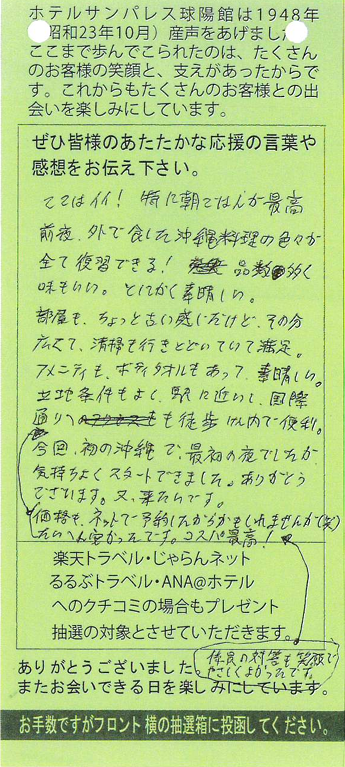 ホテルサンパレス球陽館は1948年
昭和23年10月）産声をあげました
ここまで歩んでこられたのは、たくさん
のお客様の笑顔と、支えがあったからで
す。これからもたくさんのお客様との出
会いを楽しみにしています。
ぜひ皆様のあたたかな応援の言葉や
感想をお伝え下さい。
ここはイイ！ 特に朝ごはんが最高
前夜、外で食した沖縄料理の色々が
全て復習できる！ 品数多く
味もいい。とにかく素晴しい。
部屋も、ちょっと古い感じだけど、その分
広くて、清掃も行きとどいていて満足。
アメニティも、ボディタオルもあって、素晴しい。
立地条件もよく、駅に近いし、国際
通りへも徒歩けん内で便利。
今回、初の沖縄で、最初の夜でしたが
気持ちよくスタートできました。ありがとう
ございます。又、来たいです。
価格も、ネットで予約したからかもしれませんが(笑)
たいへん安かったです。コスパ最高！
楽天トラベル・じゃらんネット
るるぶトラベル・ANA@ホテル
へのクチコミの場合もプレゼント
抽選の対象とさせていただきます。
係員の対応も笑顔で
やさしくよかったです。
ありがとうございました。
またお会いできる日を楽しみにしています。
お手数ですがフロント横の抽選箱に投函してください。